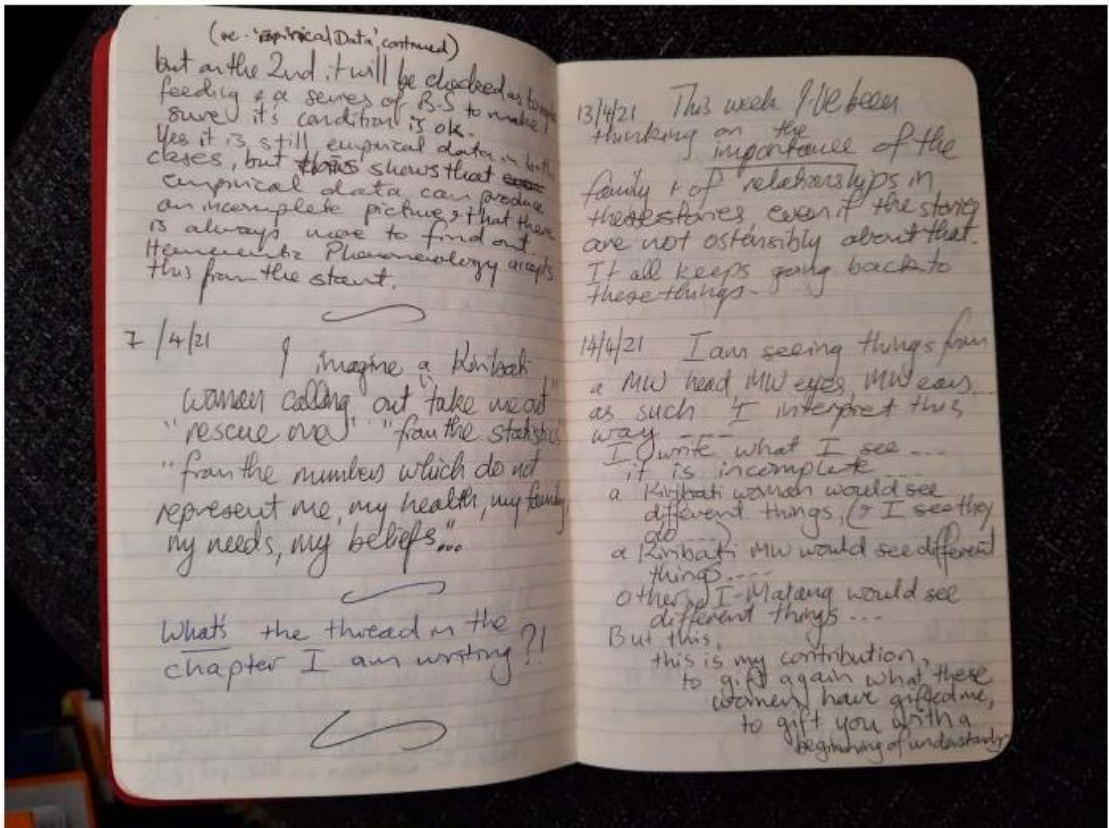 (re- 'Empirical Data' continued)
but on the 2nd it will be checked as to
feeding & a series of B.S to make
sure it's condition is ok.
Yes it is still empirical data in both
cases, but this shows that
empirical data can produce
an incomplete picture & that there
is always more to find out.
Phenomenology accepts
this from the start.
7/4/21
I imagine a Kiribati
woman calling out "take me out"
"rescue me" "from the statistics"
"from the numbers which do not
represent me, my health, my family,
my needs, my beliefs"...
What's the thread in the
chapter I am writing?!
13/4/21 This week I've been
thinking on the
importance of the
family & of relationships in
these stories even if the stories
are not ostensibly about that.
It all keeps going back to
these things-
14/4/21 I am seeing things from
a MW head MW eyes MW ears...
as such I interpret this
way ----
I write what I see ....
it is incomplete
a Kiribati woman would see
different things, (& I see they
do ....)
a Kiribati MW would see different
things ....
others, I-Matang would see
different things ...
But this,
this is my contribution,
to gift again what these
women have gifted me,
to gift you with a
beginning of understanding